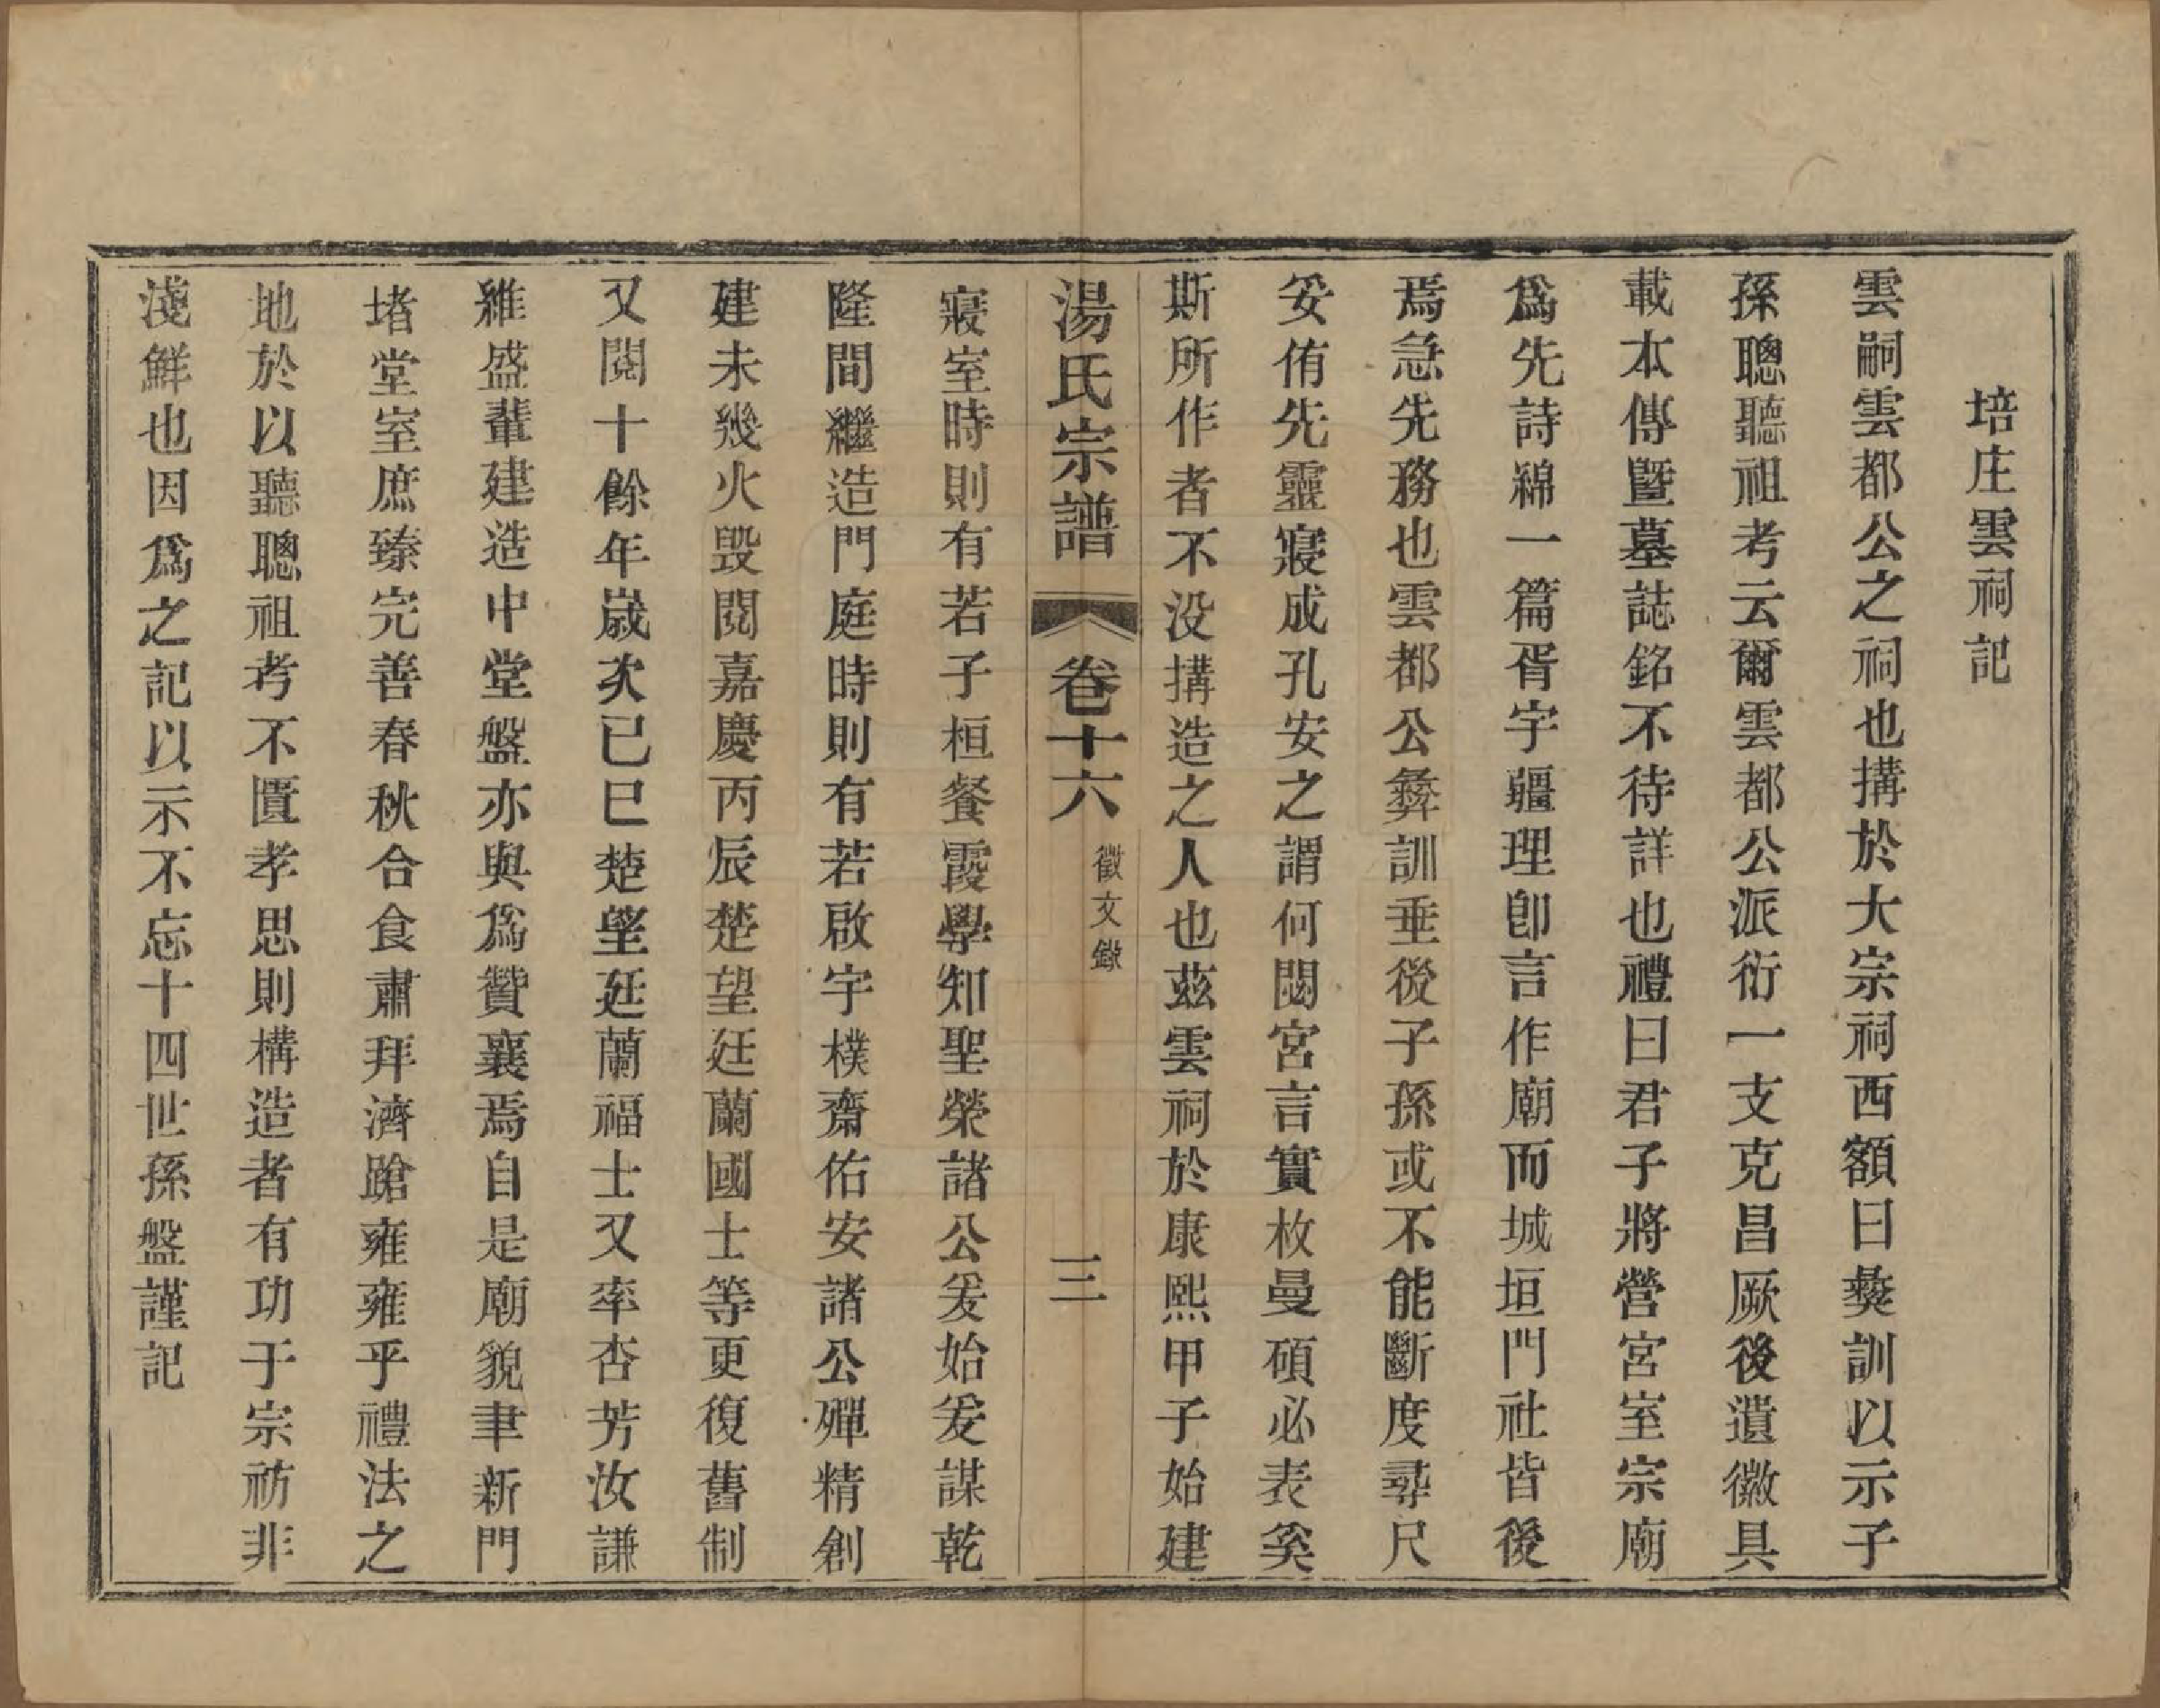 培庄雲祠記
雲嗣雲都公之祠也搆於大宗祠西額曰彝訓以示子
孫聰聽祖考云爾雲都公派衍一支克昌厥後遺徽具
載本傳暨墓誌銘不待詳也禮曰君子將營宮室宗廟
爲先詩綿一篇胥宇疆理卽言作廟而城垣門社皆後
焉急先務也雲都公彝訓垂後子孫或不能斷度尋尺
妥侑先靈寢成孔安之謂何閟宮言實枚曼碩必表奚
斯所作者不没搆造之人也茲雲祠於康熙甲子始建
湯氏宗譜 卷十六 徵文錄 三
寢室時則有若子桓餐霞學知聖榮諸公爰始爰謀乾
隆間繼造門庭時則有若啟宇樸齋佑安諸公殫精創
建未幾火毀閱嘉慶丙辰楚望廷蘭國士等更復舊制
又閱十餘年歲次已巳楚望廷蘭福士又率杏芳汝謙
維盛輩建造中堂盤亦與爲贊襄焉自是廟貌聿新門
堵堂室庶臻完善春秋合食肅拜濟蹌雍雍乎禮法之
地於以聽聰祖考不匱孝思則構造者有功于宗祊非
淺鮮也因爲之記以示不忘十四世孫盤謹記